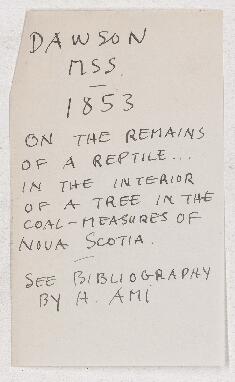 DAWSON
MSS.
—
1853
ON THE REMAINS
OF A REPTILE...
IN THE INTERIOR
OF A TREE IN THE
COAL-MEASURES OF
NOVA SCOTIA.
—
SEE BIBLIOGRAPHY
BY H. AMI